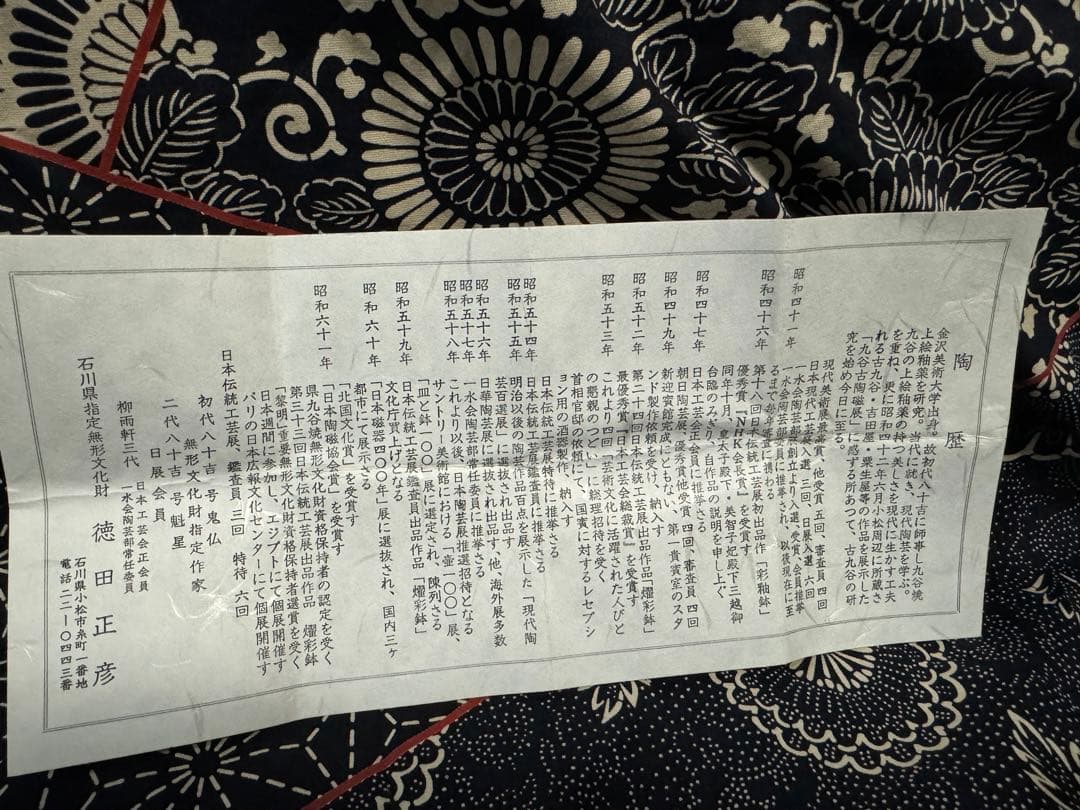 陶歴
金沢美術大学出身、故初代八十吉に師事し九谷焼
上絵釉薬を研究。当代に続き、現代陶芸を学ぶ。
九谷の上絵釉薬の持つ美しさを現代に生かす工夫
を重ね、更に昭和四十二年六月小松周辺に所蔵さ
れる古九谷・吉田屋・粟生屋等の作品を展示した
「九谷古陶磁展」に感ずる所あって、古九谷の研
究を始め今日に至る。
現代美術展最高賞、他受賞五回、審査員四回
日本現代工芸展入選 三回、日展入選 六回
昭和四十一年 一水会陶芸部創立より入選、受賞、会員推挙
一水会陶芸部委員に推挙され、以後現在に至
るまで毎年運営に携わる
昭和四十六年 第十八回日本伝統工芸展初出品作「彩釉鉢」
優秀賞「NHK会長賞」を受賞す
同年十月、皇太子殿下・美智子妃殿下三越御
台臨のみぎり、自作品の説明を申し上ぐ
昭和四十七年 日本工芸会正会員に推挙さる
朝日陶芸展、優秀賞他受賞 四回、審査員 四回
昭和四十九年 新迎賓館完成にともない、第一貴賓室のスタ
ンド製作依頼を受け、納入す
昭和五十二年 第二十四回日本伝統工芸展出品作品「燿彩鉢」
最優秀賞「日本工芸会総裁賞」を受賞す
昭和五十三年 これより四回「芸術文化に活躍された人びと
の懇親のつどい」に総理招待を受く
首相官邸の依頼にて、国賓に対するレセプシ
ョン用の酒器製作、納入す
日本伝統工芸展特待に推挙さる
昭和五十四年 日本伝統工芸展鑑査員に推挙さる
昭和五十五年 明治以後の陶芸作品百点を展示した「現代陶
芸百選展」に選抜され出品す
日華陶芸展に選抜され出品す、他、海外展多数
昭和五十六年 一水会陶芸部常任委員に推挙さる
昭和五十七年 これより以後、日本陶芸展推選招待となる
昭和五十八年 サントリー美術館における「壷一〇〇」展、
「皿と鉢一〇〇」展に選定され、陳列さる
日本伝統工芸展鑑査員出品作品「燿彩鉢」
昭和五十九年 文化庁買上げとなる
「日本磁器四〇〇年」展に選抜され、国内三ヶ
都市にて展示さる
昭和六十年 「北国文化賞」を受賞す
「日本陶磁協会賞」を受賞す
県九谷焼無形文化財資格保持者の認定を受く
昭和六十一年 第三十三回日本伝統工芸展出品作品 燿彩鉢
「黎明」重要無形文化財資格保持者選賞を受く
日本週間に参加し、エジプトにて個展開催す
パリの日本広報文化センターにて個展開催す
日本伝統工芸展、鑑査員 三回 特待 六回
初代八十吉 号 鬼仏
無形文化財指定作家
二代八十吉 号 魁星
日展会員
柳雨軒三代 日本工芸会正会員
一水会陶芸部常任委員
石川県指定無形文化財 徳田正彦
石川県小松市糸町一番地
電話二二-〇四四三番